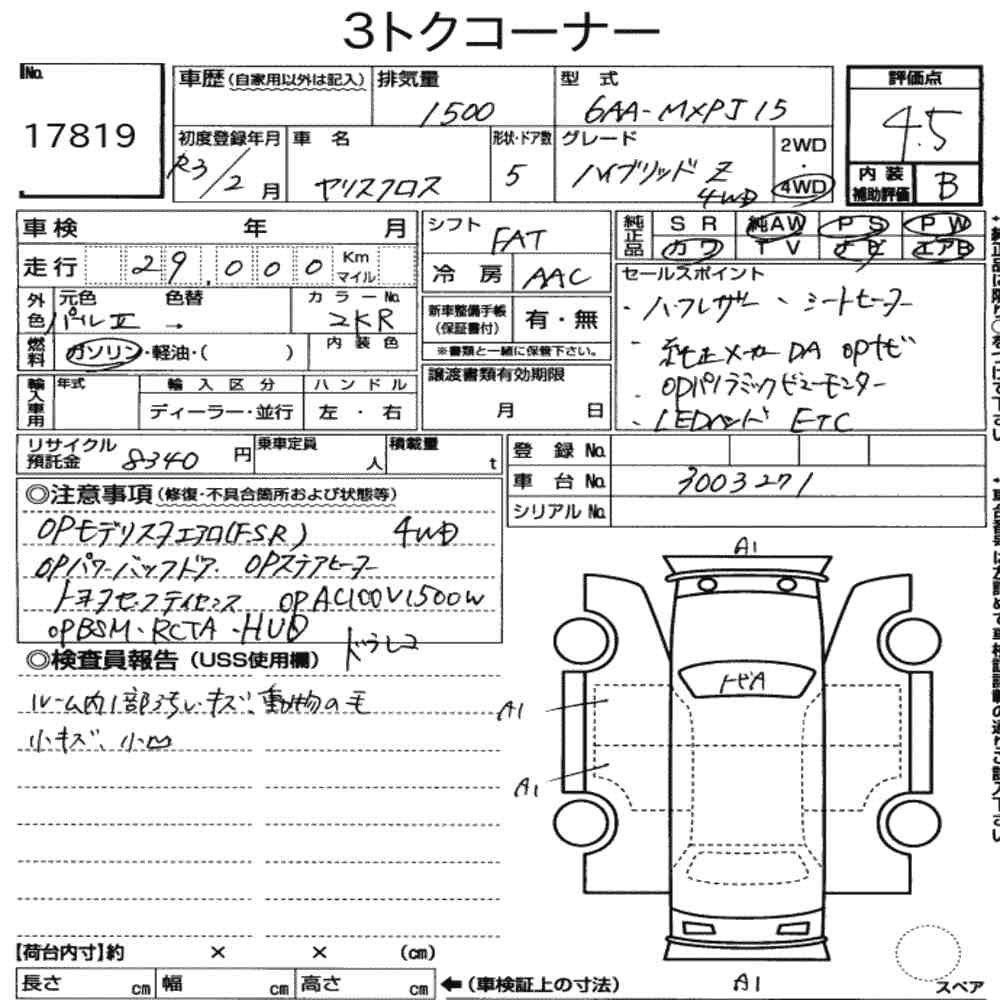 3トクコーナー
No.
17819
車歴(自家用以外は記入)
排気量
1500
型 式
6AA-MXPJ15
評価点
4.5
初度登録年月
R3/2月
車 名
ヤリスクロス
形状・ドア数
5
グレード
ハイブリッド Z
4WD
2WD
・
4WD
内 装
補助評価
B
車検 年 月
走行 29,000 Km
マイル
シフト
FAT
冷 房
AAC
純正品
SR 純AW PS PW
カワ TV ナビ エアB
外色
元色 色替
パールII →
カラーNo.
2KR
燃料
ガソリン・軽油・( )
内 装 色
新車整備手帳
(保証書付)
有・無
※書類と一緒に保管下さい。
セールスポイント
・ハーフレザー、シートヒーター
・純正メーカーDA OPナビ
・OPパノラミックビューモニター
・LEDヘッド ETC
輸入車用
年式
輸 入 区 分
ディーラー・並行
ハ ン ド ル
左 ・ 右
譲渡書類有効期限
月 日
リサイクル
預託金 8340 円
乗車定員
人
積載量
t
登 録 No.
車 台 No. 3003271
シリアル No.
◎注意事項(修復・不具合箇所および状態等)
OPモデリスタエアロ(F.S.R) 4WD
OPパワーバックドア OPステアヒーター
トヨタセーフティセンス OPAC100V1500W
OPBSM・RCTA・HUD
ドラレコ
◎検査員報告(USS使用欄)
ルーム内1部汚れ、キズ、動物の毛
小キズ、小凹
A1
トビA
A1
A1
A1
【荷台内寸】約 × × (cm)
長さ cm 幅 cm 高さ cm
←(車検証上の寸法)
スペア